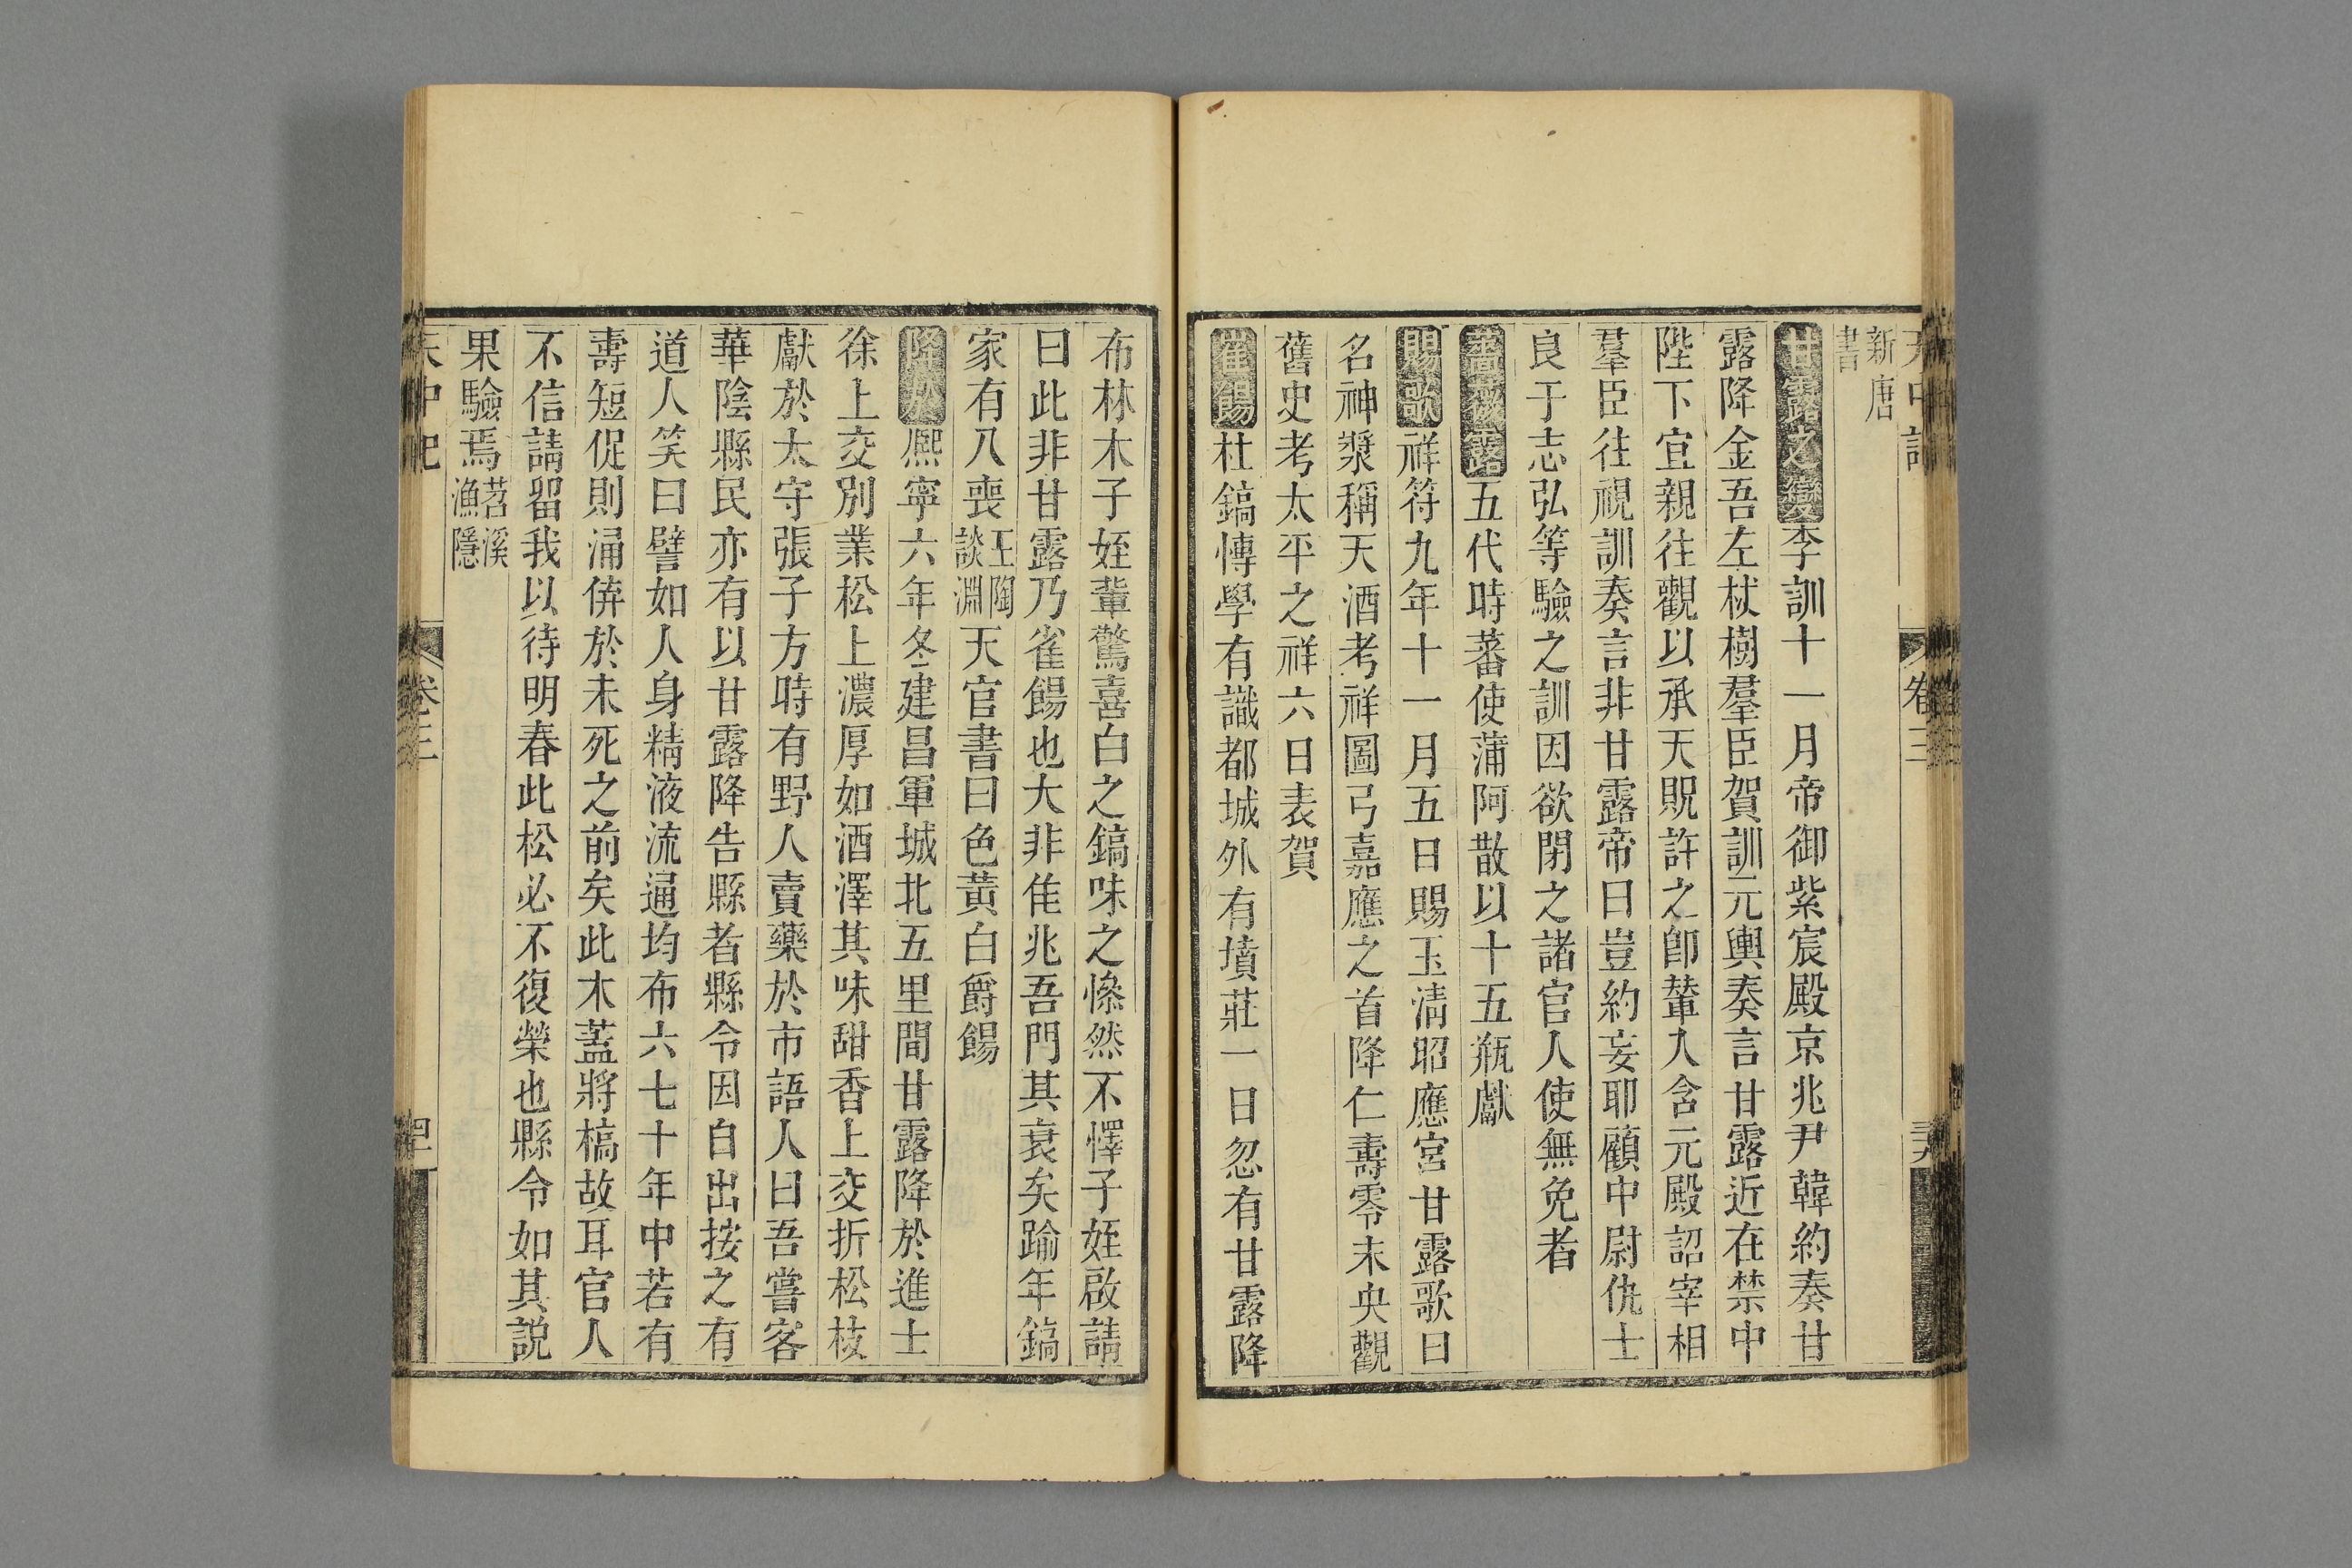 新唐
書
甘露之變李訓十一月帝御紫宸殿京兆尹韓約奏甘
露降金吾左杖樹羣臣賀訓元輿奏言甘露近在禁中
陛下宜親往觀以承天貺許之卽輦入含元殿詔宰相
羣臣往視訓奏言非甘露帝曰豈約妄耶顧中尉仇士
良于志弘等驗之訓因欲閉之諸官人使無免者
薔薇露五代時蕃使蒲阿散以十五瓶獻
賜歌祥符九年十一月五日賜玉淸昭應宮甘露歌曰
名神漿稱天酒考祥圖弓嘉應之首降仁壽零未央觀
舊史考太平之祥六日表賀
雀餳杜鎬慱學有識都城外有墳莊一日忽有甘露降
布林木子姪輩驚喜白之鎬味之慘然不懌子姪啟請
曰此非甘露乃雀餳也大非佳兆吾門其衰矣踰年鎬
家有八喪王陶談淵天官書曰色黃白爵餳
降於熙寧六年冬建昌軍城北五里間甘露降於進士
徐上交別業松上濃厚如酒澤其味甜香上交折松枝
獻於太守張子方時有野人賣藥於市語人曰吾嘗客
華陰縣民亦有以甘露降告縣者縣令因自出按之有
道人笑曰譬如人身精液流通均布六七十年中若有
壽短促則涌倂於未死之前矣此木蓋將槁故耳官人
不信請留我以待明春此松必不復榮也縣令如其説
果驗焉苕溪漁隱